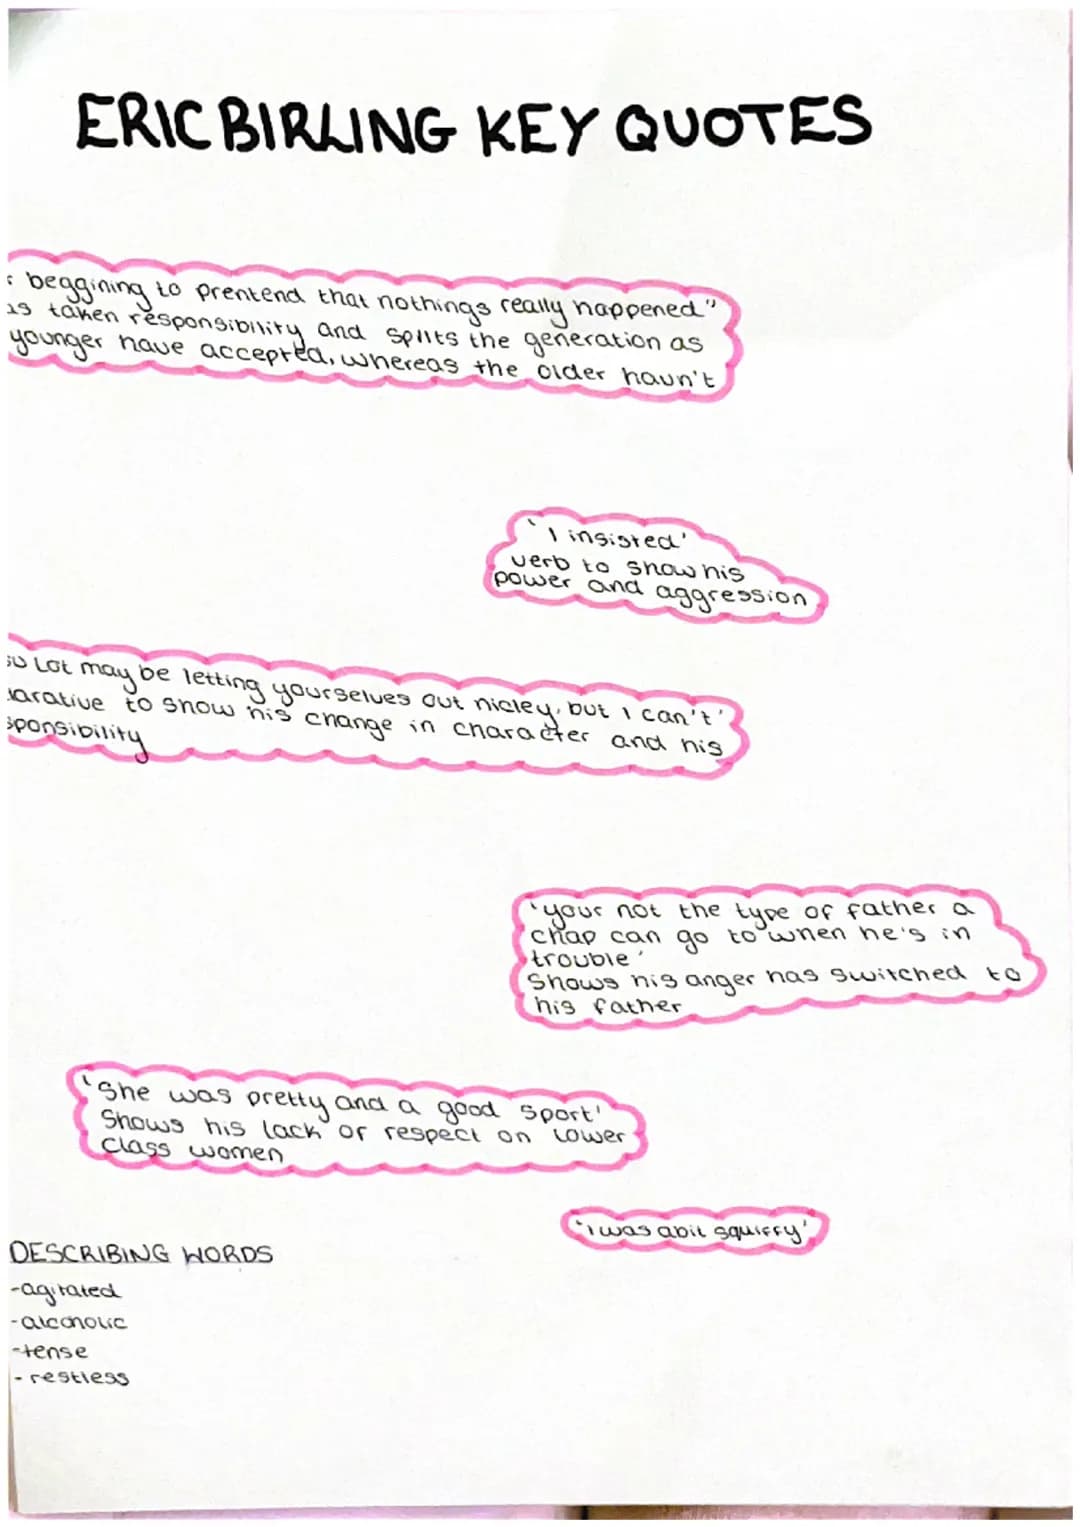 ERIC BIRLING KEY QUOTES
beggining to prentend that nothings really happened"
as taken responsibility and splits the generation as
younger have accepted, whereas the older haun't
'I insisted'
verb to show his
power and aggression
Lot may be letting yourselves out nicley, but I can't'
larative to show his change in character and his
sponsibility
'your not the type of father a
chap can go to when he's in
trouble'
Shows his anger has switched to
his father
'She was pretty and a good sport'
Shows his lack of respect on lower
class women
'i was abit squiffy'
DESCRIBING WORDS
-agitated
-alcoholic
-tense
- restless